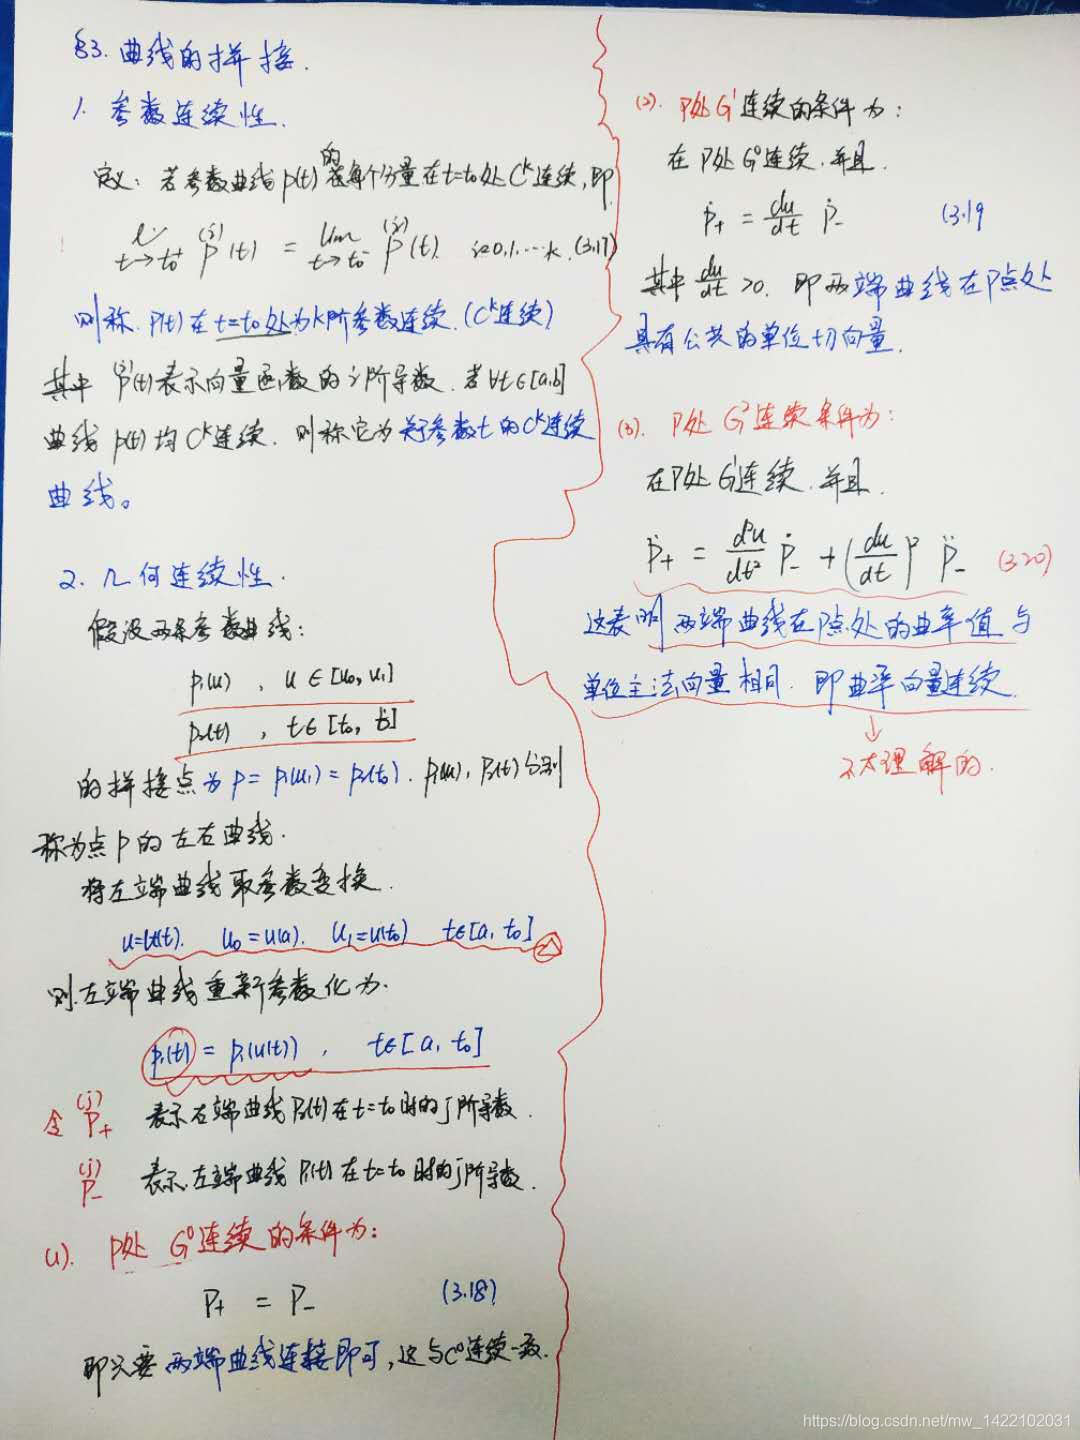 §3. 曲线的拼接.
1. 参数连续性.
定义: 若参数曲线 p(t) 的每个分量在 t=t₀ 处 Cᵏ 连续, 即
t→t₀⁺ p⁽ʲ⁾(t) = lim t→t₀⁻ p⁽ʲ⁾(t). j=0,1,…k. (3.17)
则称. p(t) 在 t=t₀ 处为 k 阶参数连续. (Cᵏ连续)
其中 p⁽ʲ⁾(t) 表示向量函数的 j 阶导数. 若 ∀t∈[a,b]
曲线 p(t) 均 Cᵏ 连续. 则称它为关于参数 t 的 Cᵏ 连续
曲线。
2. 几何连续性.
假设两条参数曲线:
p₁(u) , u∈[u₀, u₁]
p₂(t) , t∈[t₀, t₁]
的拼接点为 p = p₁(u₁) = p₂(t₀). p₁(u), p₂(t) 分别
称为点 p 的左右曲线.
将左端曲线取参数变换.
u=u(t). u₀=u(a). u₁=u(t₀) t∈[a, t₀]
则左端曲线重新参数化为.
p₁(t) = p₁(u(t)) , t∈[a, t₀]
令 p₊⁽ʲ⁾ 表示右端曲线 p₂(t) 在 t=t₀ 时的 j 阶导数.
p₋⁽ʲ⁾ 表示左端曲线 p₁(t) 在 t=t₀ 时的 j 阶导数.
(1). p处 G⁰连续的条件为:
p₊ = p₋ (3.18)
即只要两端曲线连接即可, 这与C⁰连续一致.
(2). p处 G¹ 连续的条件为:
在 p 处 G⁰ 连续. 并且.
ṗ₊ = du/dt ṗ₋ (3.19
其中 du/dt >0. 即两端曲线在p点处
具有公共的单位切向量.
(3). p处 G² 连续条件为:
在p处 G¹连续. 并且.
p̈₊ = d²u/dt² ṗ₋ + (du/dt)² p̈₋ (3.20)
这表明两端曲线在p点处的曲率值与
单位主法向量相同. 即曲率向量连续.
不太理解的.
https://blog.csdn.net/mw_1422102031